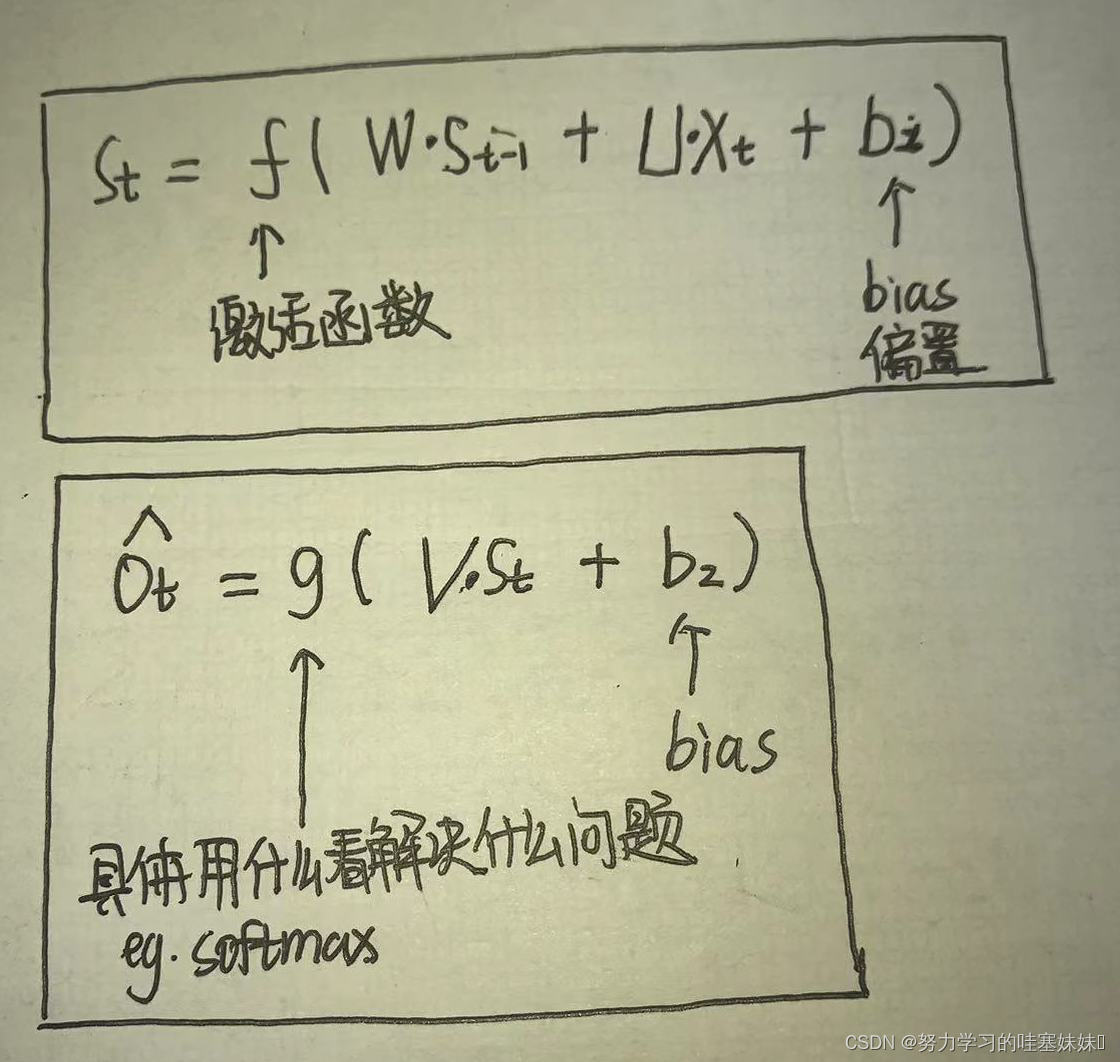 St = f( W·St-1 + U·Xt + bi)
↑ ↑
激活函数 bias
偏置
Ôt = g( V·St + b2)
↑ ↑
bias
具体用什么看解决什么问题
eg. softmax
CSDN @努力学习的哇塞妹妹